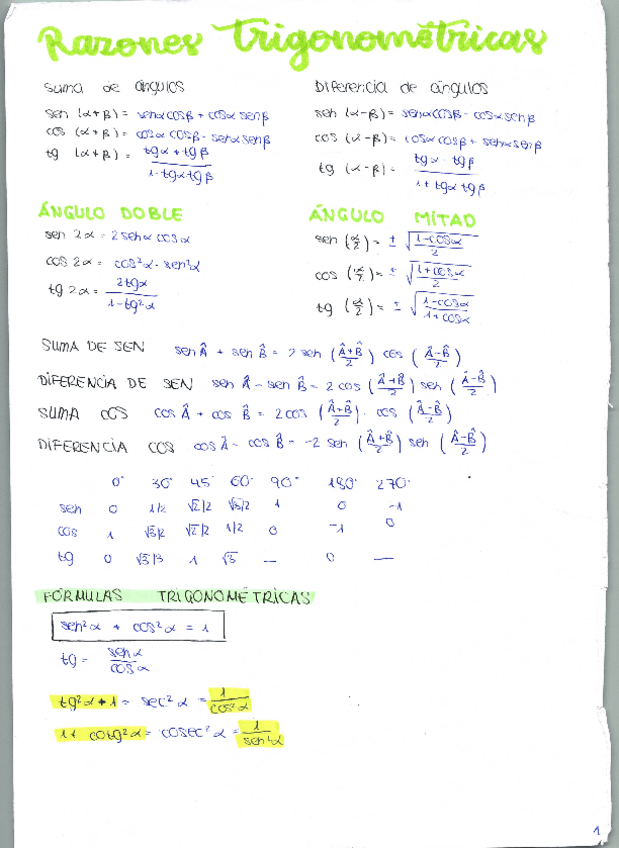 Razones Trigonométricas
Suma de ángulos
sen (α+β) = senα cosβ + cosα senβ
cos (α+β) = cosα cosβ - senα senβ
tg (α+β) = tgα + tgβ / 1 - tgα tgβ
Diferencia de ángulos
sen (α-β) = senα cosβ - cosα senβ
cos (α-β) = cosα cosβ + senα senβ
tg (α-β) = tgα - tgβ / 1 + tgα tgβ
ÁNGULO DOBLE
sen 2α = 2 senα cosα
cos 2α = cos²α - sen²α
tg 2α = 2tgα / 1 - tg²α
ÁNGULO MITAD
sen (α/2) = ± √(1-cosα / 2)
cos (α/2) = ± √(1+cosα / 2)
tg (α/2) = ± √(1-cosα / 1+cosα)
SUMA DE SEN sen Â + sen B̂ = 2 sen (Â+B̂ / 2) cos (Â-B̂ / 2)
DIFERENCIA DE SEN sen Â - sen B̂ = 2 cos (Â+B̂ / 2) sen (Â-B̂ / 2)
SUMA COS cos Â + cos B̂ = 2 cos (Â+B̂ / 2) · cos (Â-B̂ / 2)
DIFERENCIA COS cos Â - cos B̂ = -2 sen (Â+B̂ / 2) sen (Â-B̂ / 2)
0° 30° 45° 60° 90° 180° 270°
sen 0 1/2 √2/2 √3/2 1 0 -1
cos 1 √3/2 √2/2 1/2 0 -1 0
tg 0 √3/3 1 √3 — 0 —
FÓRMULAS TRIGONOMÉTRICAS
sen²α + cos²α = 1
tg = senα / cosα
tg²α + 1 = sec²α = 1 / cos²α
1 + cotg²α = cosec²α = 1 / sen²α
1